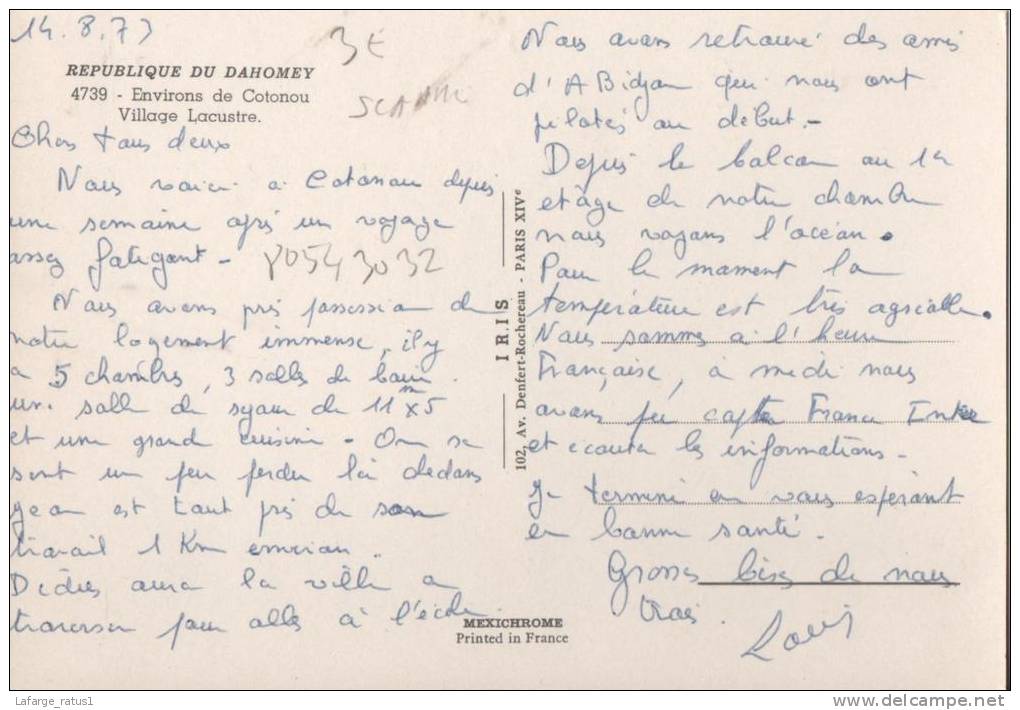 14.8.73
3€
REPUBLIQUE DU DAHOMEY
4739 - Environs de Cotonou
Village Lacustre.
Chers tous deux
Nous voici à Cotonou depuis
une semaine après un voyage
assez fatigant -
80543032
Nous avons pris possession de
notre logement immense, il y
a 5 chambres, 3 salles de bain.
une salle de séjour de 11m x 5
et une grande cuisine - On se
sent un peu perdu là dedans
Jean est tout près de son
travail 1 Km environ.
Didier aura la ville a
traverser pour aller à l'école.
Nous avons retrouvé des amis
d'ABidjan qui nous ont
pilotés au début.-
Depuis le balcon au 1er
etage de notre chambre
nous voyons l'océan.
Pour le moment la
température est très agréable.
Nous sommes à l'heure
Française, à midi nous
avons pu capter France Inter
et écouter les informations -
Je termine en vous espérant
en bonne santé.
Grosses bises de nous
trois.
IRIS
102, Av. Denfert-Rochereau - PARIS XIVe
MEXICHROME
Printed in France
Lafarge_ratus1
www.delcampe.net